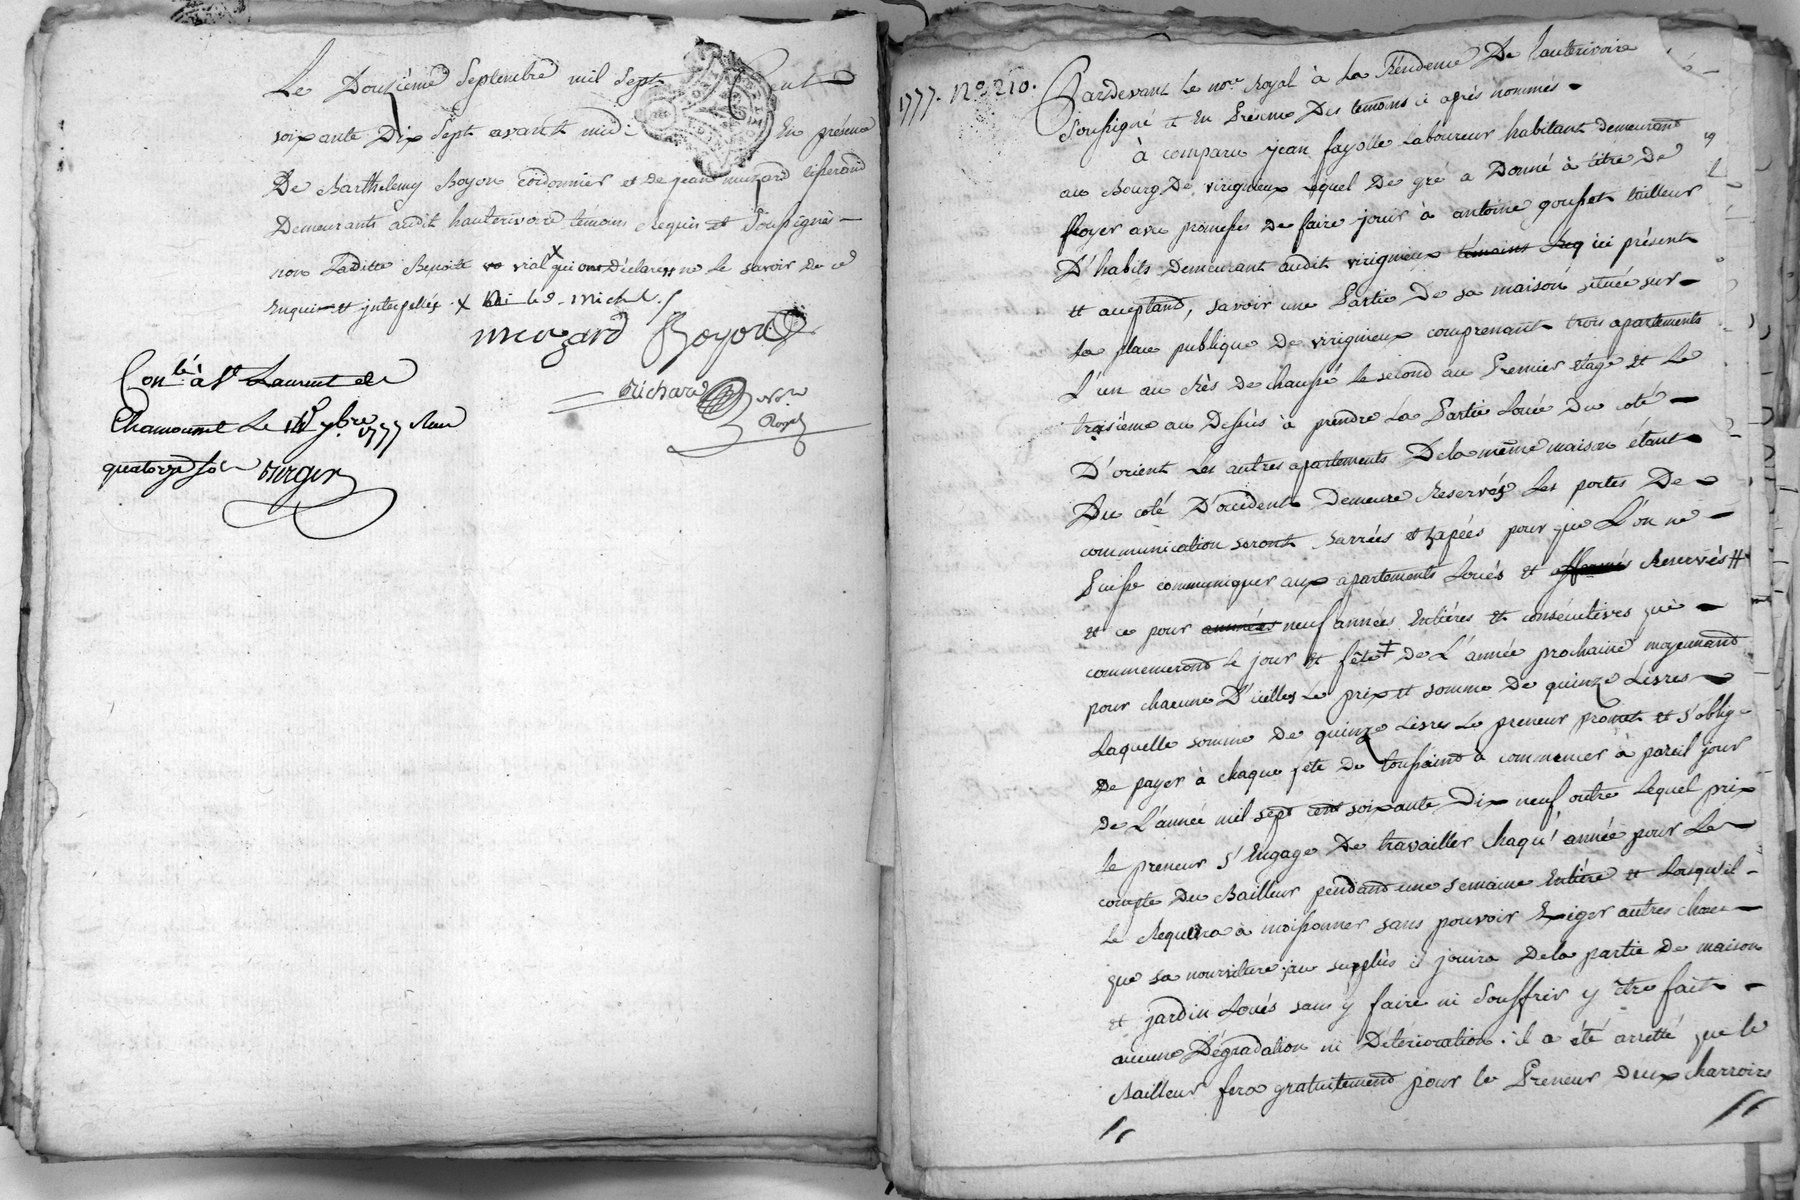 Le Douzième Septembre mil Sept Cent
soixante Dix Sept avant midi En présence
De Barthelemy Boyon Cordonnier et de jean muzard tisserand
Demeurants audit hauterivoire témoins Requis et Soussignés
non Laditte Benoite vial x qui ont déclarés ne le savoir de ce
Enquis et interpellés. x
mozard Boyon
Richard notre
Royal
Conlé à St Laurent de
Chamousset Le 14e 7bre 1777 Reçu
quatorze sol
1777. No. 210.
Pardevant Le nore Royal à La Résidence De hauterivoire
Soussigné et En Présence Des temoins ci après nommés
à comparu jean fayolle Laboureur habitant demeurant
au Bourg De virigneux Lequel De gré a Donné à titre De
Loyer avec promesses De faire jouir à antoine gousset tailleur
D'habits Demeurant audit virigneux témoins Req ici présent
et acceptand, savoir une Partie De sa maison située sur
La place publique De virigneux comprenant trois apartements
L'un au Rès de chaussé le second au Premier étage et Le
troisième au Dessus à prendre La Partie Louée Du coté
D'orient Les autres apartements Dela même maison étant
Du coté D'occident Demeure Reservés Les portes De
communication seront Barrées et tapées pour que L'on ne
Puisse communiquer aux apartements Loués et Reservés #
et ce pour années neuf années Entières et consécutives qui
commencerond le jour et fête ‡ De L'année prochaine moyennand
pour chacune D'icelles Le prix et somme De quinze Livres
Laquelle somme De quinze Livres Le preneur promet et s'oblige
De payer à chaque fête De toussaind à commencer à pareil jour
De L'année mil sept cent soixante Dix neuf outre Lequel prix
le preneur s'Engage De travailler chaqu'année pour Le
compte Du Bailleur pendand une semaine Entière et Lorsqu'il
Le Requera à moissonner sans pouvoir Exiger autres chose
que sa nourriture, au supplus il jouira Dela partie De maison
et jardin Loués sans y faire ni Souffrir y être fait
aucune Dégradation ni Déterioration. il a été arretté que le
Bailleur fera gratuitemend pour le Preneur Deux charroirs